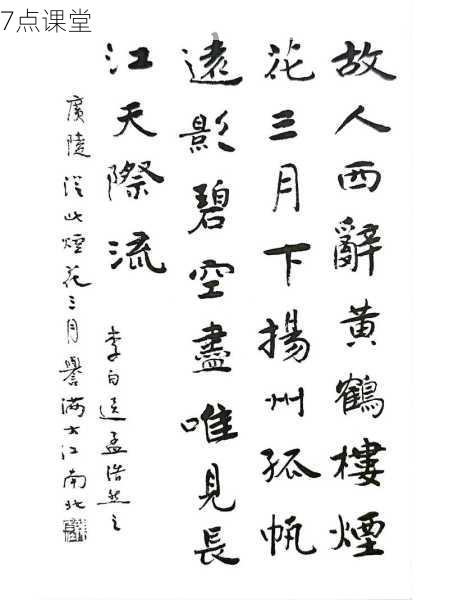 7点课堂
故人西辭黃鶴樓煙
花三月下揚州孤帆
遠影碧空盡唯見長
江天際流
李白送孟浩然之
廣陵 從此煙花三月譽滿大江南北